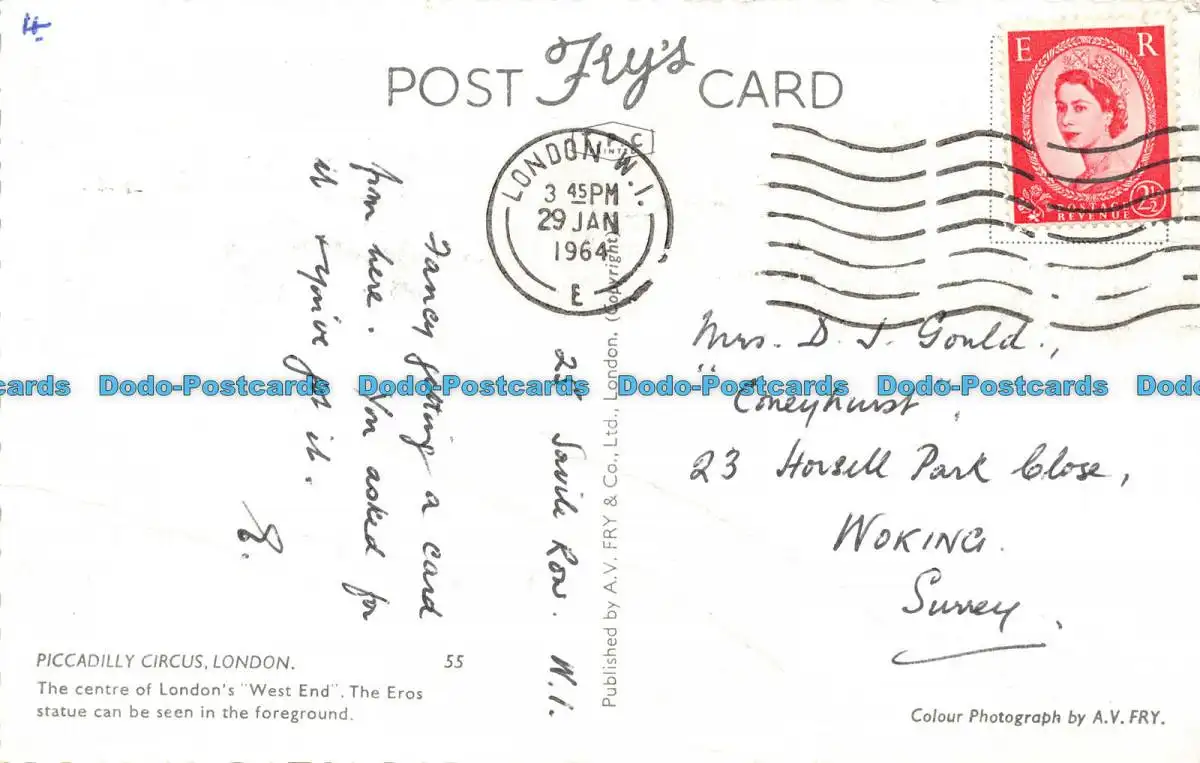 4
POST Fry's CARD
E R
POSTAGE
REVENUE
2½
LONDON W.1.
3 45PM
29 JAN
1964
E
25 Savile Row. W.1.
Fancy getting a card
from here. You asked for
it & you've got it.
E.
Published by A.V. FRY & Co., Ltd., London. (Copyright)
Mrs. D. J. Gould.,
"Coneyhurst",
23 Horsell Park Close,
WOKING.
Surrey.
PICCADILLY CIRCUS, LONDON. 55
The centre of London's "West End". The Eros
statue can be seen in the foreground.
Colour Photograph by A.V. FRY.
Dodo-Postcards Dodo-Postcards Dodo-Postcards Dodo-Postcards